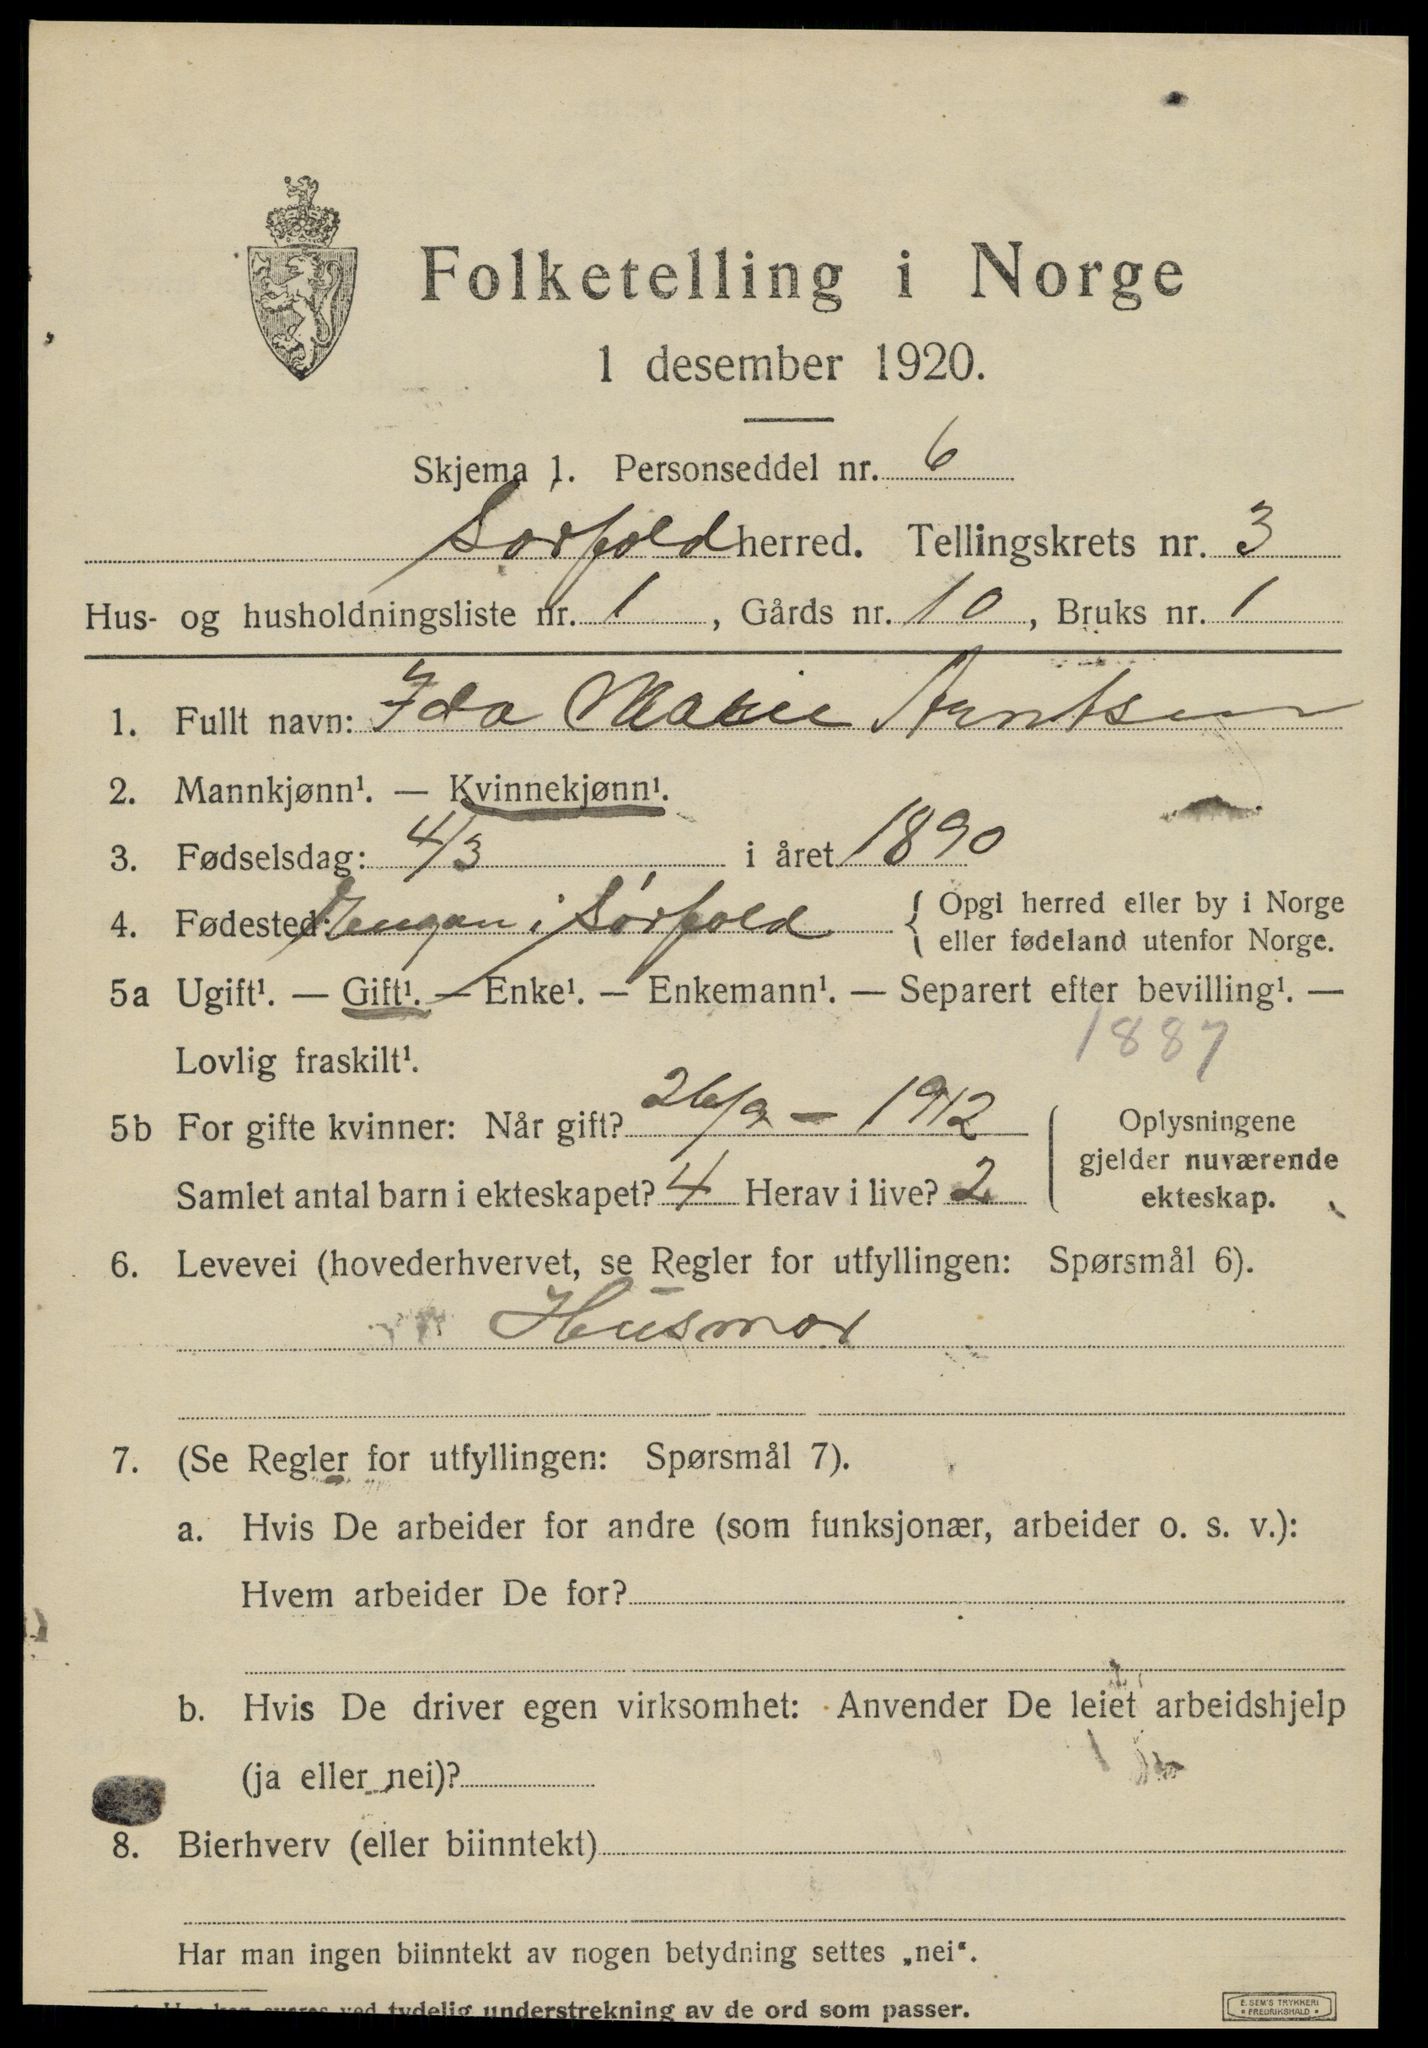 Folketelling i Norge
1 desember 1920.
Skjema 1. Personseddel nr. 6
Sørfold herred. Tellingskrets nr. 3
Hus- og husholdningsliste nr. 1, Gårds nr. 10, Bruks nr. 1
1. Fullt navn: Ida Marie Arntsen
2. Mannkjønn¹. — Kvinnekjønn¹.
3. Fødselsdag: 4/3 i året 1890
4. Fødested: i Sørfold { Opgi herred eller by i Norge
eller fødeland utenfor Norge.
5a Ugift¹. — Gift¹. — Enke¹. — Enkemann¹. — Separert efter bevilling¹. —
1887
Lovlig fraskilt¹.
5b For gifte kvinner: Når gift? 26/9 — 1912
Samlet antal barn i ekteskapet? 4 Herav i live? 2
Oplysningene
gjelder nuværende
ekteskap.
6. Levevei (hovederhvervet, se Regler for utfyllingen: Spørsmål 6).
Husmor
7. (Se Regler for utfyllingen: Spørsmål 7).
a. Hvis De arbeider for andre (som funksjonær, arbeider o. s. v.):
Hvem arbeider De for?
b. Hvis De driver egen virksomhet: Anvender De leiet arbeidshjelp
(ja eller nei)?
8. Bierhverv (eller biinntekt)
Har man ingen biinntekt av nogen betydning settes „nei“.
ved tydelig understrekning av de ord som passer.
E. SEM'S TRYKKERI
FREDRIKSHALD